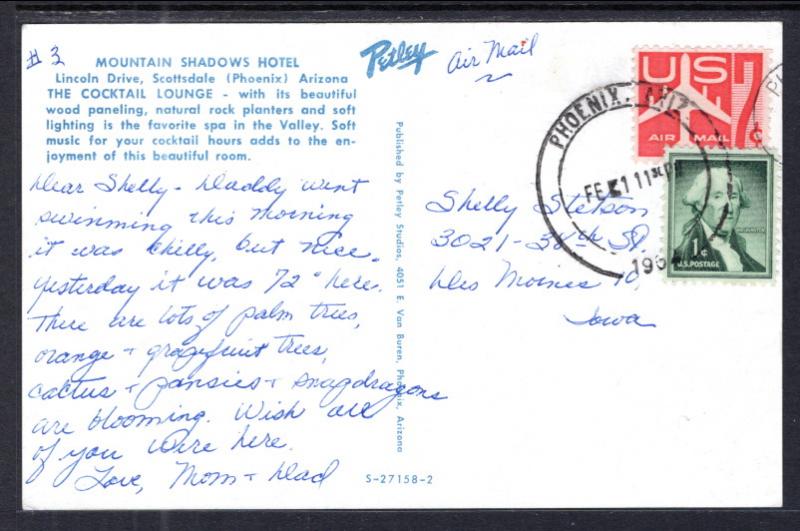 #3
MOUNTAIN SHADOWS HOTEL
Lincoln Drive, Scottsdale (Phoenix) Arizona
THE COCKTAIL LOUNGE - with its beautiful
wood paneling, natural rock planters and soft
lighting is the favorite spa in the Valley. Soft
music for your cocktail hours adds to the en-
joyment of this beautiful room.
Dear Shelly - Daddy went
swimming this morning
it was chilly, but nice.
Yesterday it was 72° here.
There are lots of palm trees,
orange + grapefruit trees,
cactus + pansies + snapdragons
are blooming. Wish all
of you were here.
Love, Mom + Dad
Petley
Published by Petley Studios, 4051 E. Van Buren, Phoenix, Arizona
S-27158-2
Air Mail
US
AIR MAIL
PHOENIX, ARIZ
FEB 1 11
196
1¢
WASHINGTON
U.S. POSTAGE
Shelly Stetson
3021-38th St.
Des Moines 10,
Iowa